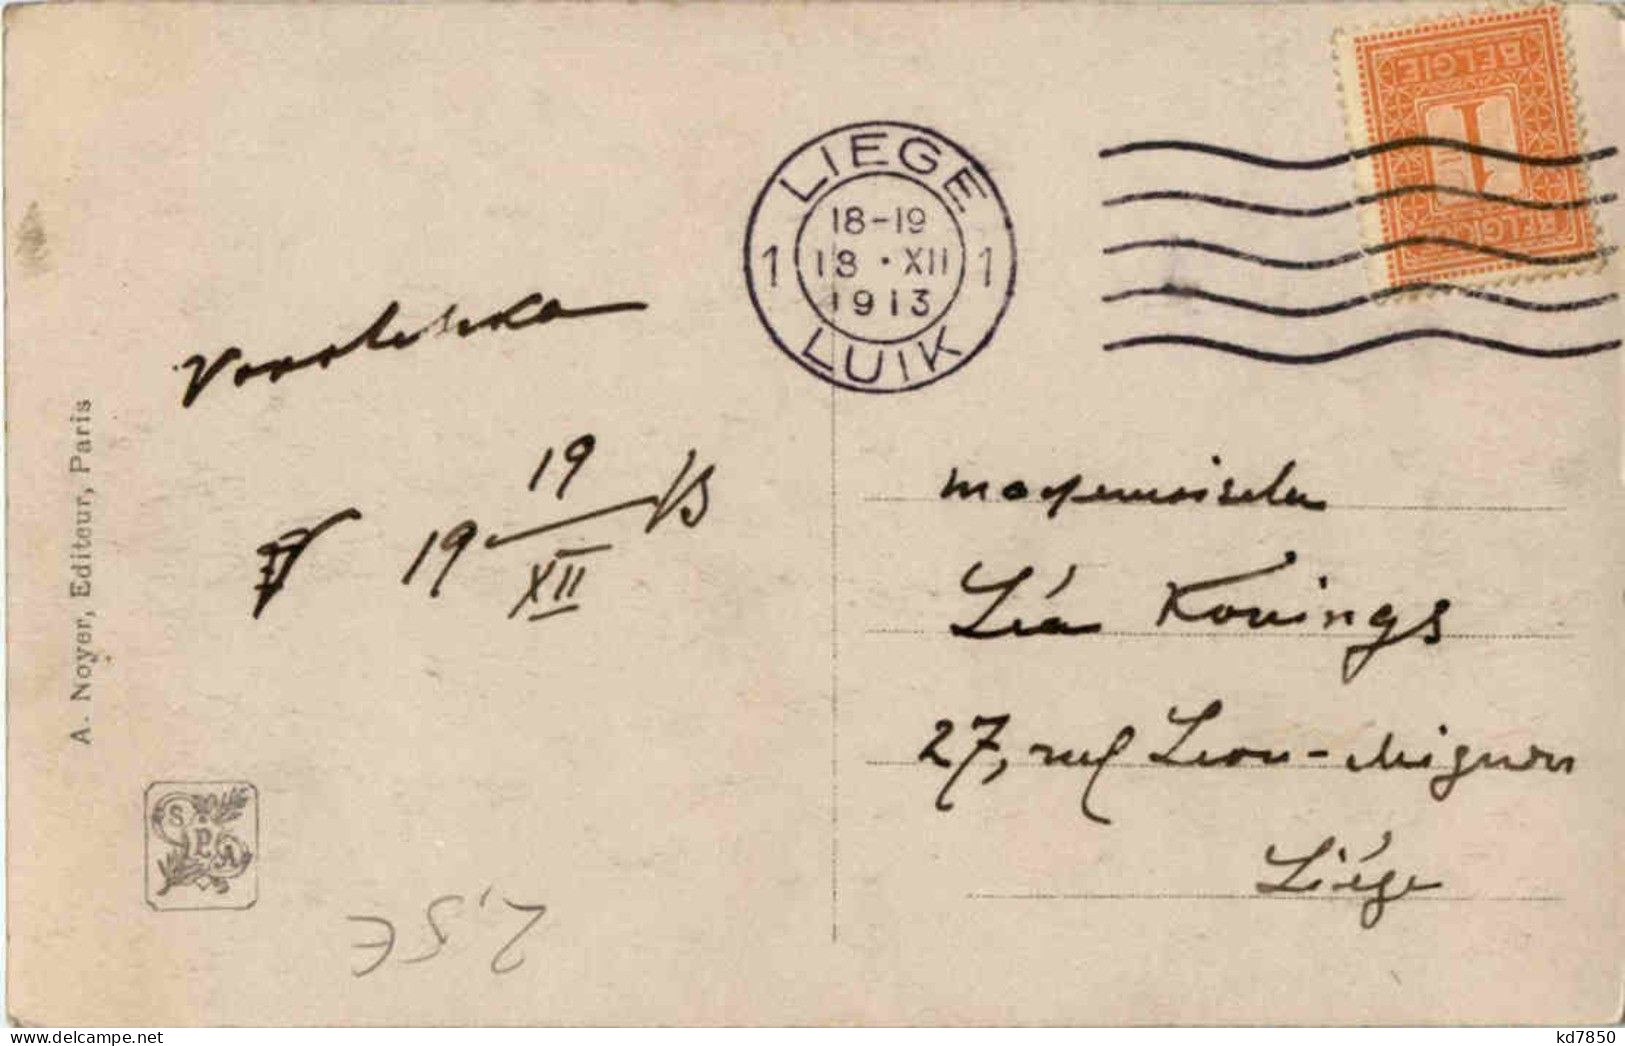 BELGIE
1
BELGIQUE
LIEGE
18-19
1 18 · XII 1
1913
LUIK
A. Noyer, Editeur, Paris
19
19 13
XII
Mademoiselle
Léa Konings
27, rue Leon-Mignon
Liége
S P A
2.5€
kd7850